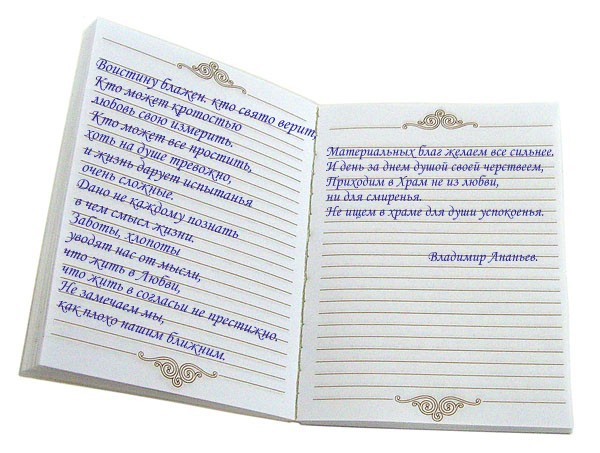 Воистину блажен, кто свято верит,
Кто может кротостью
любовь свою измерить.
Кто может все простить,
хоть на душе тревожно,
и жизнь дарует испытанья
очень сложные.
Дано не каждому познать
в чем смысл жизни.
Заботы, хлопоты
уводят нас от мысли,
что жить в Любви,
что жить в согласьи не престижно.
Не замечаем мы,
как плохо нашим ближним.
Материальных благ желаем все сильнее,
И день за днем душой своей черствеем,
Приходим в Храм не из любви,
ни для смиренья.
Не ищем в храме для души успокоенья.
Владимир Ананьев.